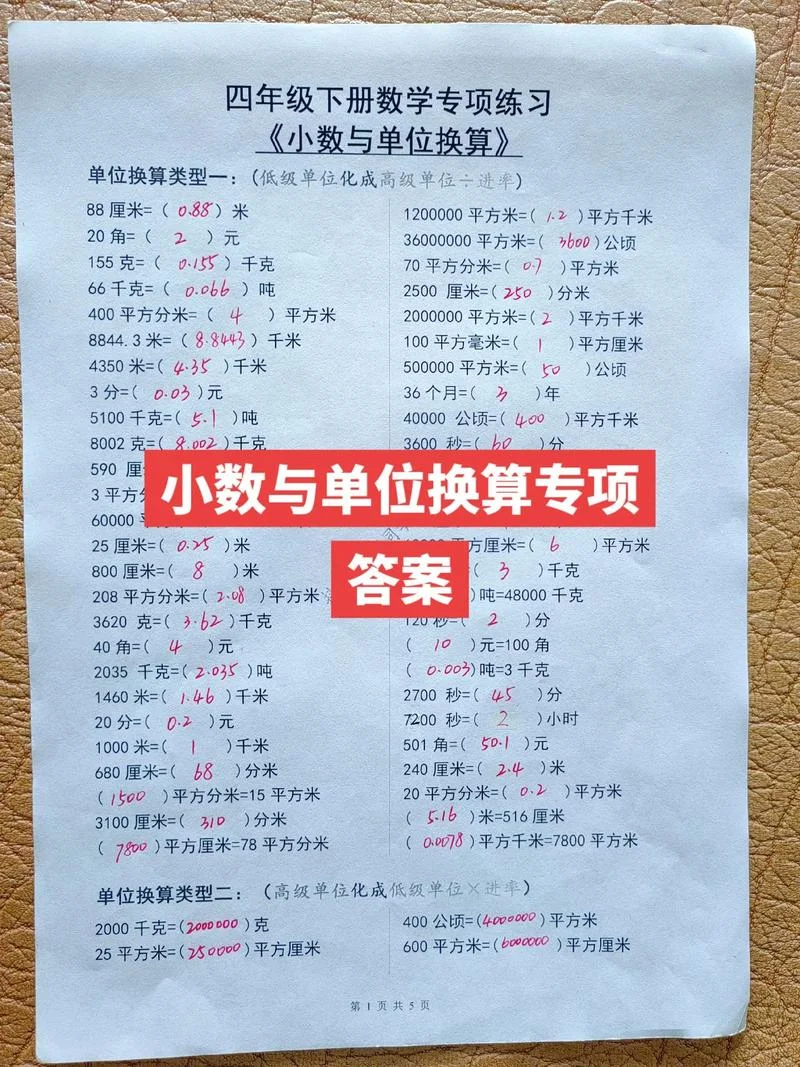 四年级下册数学专项练习
《小数与单位换算》
单位换算类型一：(低级单位化成高级单位÷进率)
88 厘米=( 0.88 ) 米
20 角=( 2 ) 元
155 克=( 0.155 ) 千克
66 千克=( 0.066 ) 吨
400 平方分米=( 4 ) 平方米
8844.3 米=( 8.8443 ) 千米
4350 米=( 4.35 ) 千米
3 分=( 0.03 )元
5100 千克=( 5.1 )吨
8002 克=( 8.002 )千克
590 厘
3 平方分
60000 平
25 厘米=( 0.25 )米
800 厘米=( 8 )米
208 平方分米=( 2.08 )平方米
3620 克=( 3.62 )千克
40 角=( 4 )元
2035 千克=( 2.035 )吨
1460 米=( 1.46 )千米
20 分=( 0.2 )元
1000 米=( 1 )千米
680 厘米=( 68 )分米
( 1500 )平方分米=15 平方米
3100 厘米=( 310 )分米
( 7800 )平方厘米=78 平方分米
1200000 平方米=( 1.2 )平方千米
36000000 平方米=( 3600 )公顷
70 平方分米=( 0.7 )平方米
2500 厘米=( 250 )分米
2000000 平方米=( 2 )平方千米
100 平方毫米=( 1 )平方厘米
500000 平方米=( 50 )公顷
36 个月=( 3 )年
40000 公顷=( 400 )平方千米
3600 秒=( 60 )分
小数与单位换算专项
答案
平方厘米=( 6 )平方米
( 3 )千克
)吨=48000 千克
120 秒=( 2 )分
( 10 )元=100 角
( 0.003 )吨=3 千克
2700 秒=( 45 )分
7200 秒=( 2 )小时
501 角=( 50.1 )元
240 厘米=( 2.4 )米
20 平方分米=( 0.2 )平方米
( 5.16 )米=516 厘米
( 0.0078 )平方千米=7800 平方米
单位换算类型二：(高级单位化成低级单位×进率)
2000 千克=( 2000000 )克
25 平方米=( 250000 )平方厘米
400 公顷=( 4000000 )平方米
600 平方米=( 6000000 )平方厘米
第 1 页 共 5 页